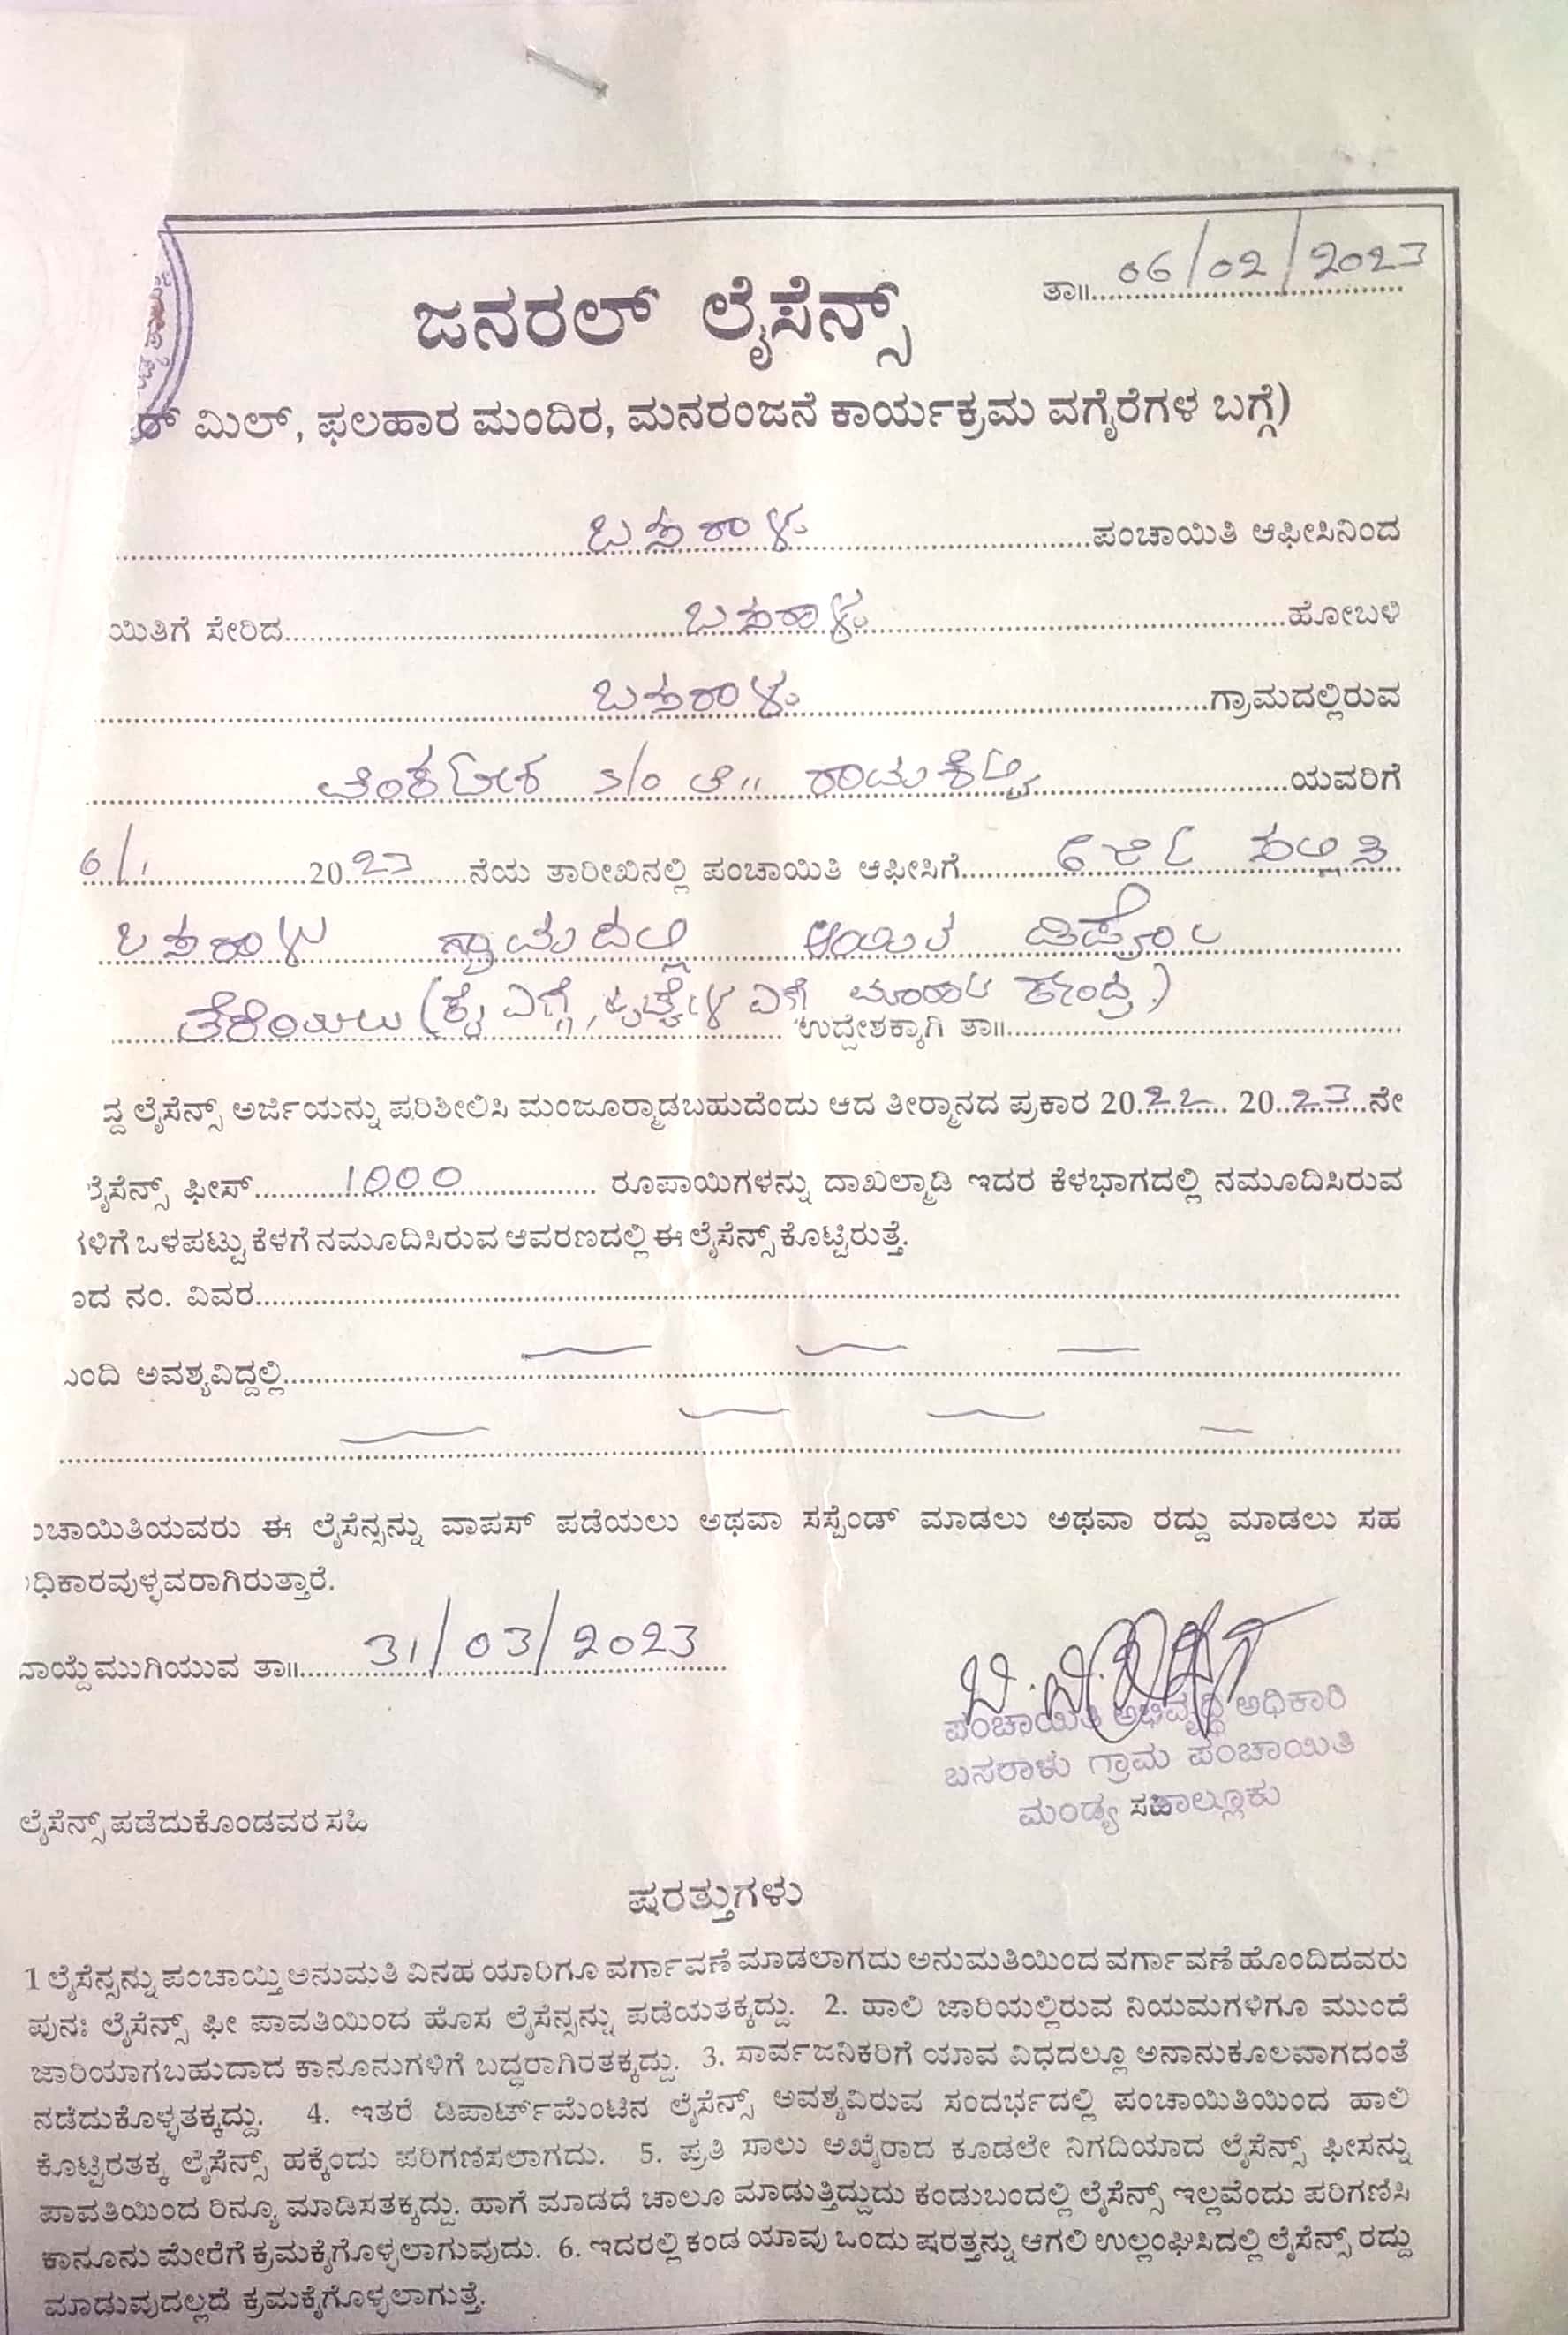 ತಾ॥ 06/02/2023
ಜನರಲ್ ಲೈಸೆನ್ಸ್
ಮಿಲ್, ಫಲಹಾರ ಮಂದಿರ, ಮನರಂಜನೆ ಕಾರ್ಯಕ್ರಮ ವಗೈರೆಗಳ ಬಗ್ಗೆ)
ಬಸರಾಳು ಪಂಚಾಯಿತಿ ಆಫೀಸಿನಿಂದ
ಯಿತಿಗೆ ಸೇರಿದ ಬಸರಾಳು ಹೋಬಳಿ
ಬಸರಾಳು ಗ್ರಾಮದಲ್ಲಿರುವ
ವೆಂಕಟೇಶ S/o ಯವರಿಗೆ
2023 ನೆಯ ತಾರೀಖಿನಲ್ಲಿ ಪಂಚಾಯಿತಿ ಆಫೀಸಿಗೆ ಅರ್ಜಿ ಸಲ್ಲಿಸಿ
ಬಸರಾಳು ಗ್ರಾಮದಲ್ಲಿ
ತೆರೆಯಲು ಉದ್ದೇಶಕ್ಕಾಗಿ ತಾ॥
ದ್ದ ಲೈಸೆನ್ಸ್ ಅರ್ಜಿಯನ್ನು ಪರಿಶೀಲಿಸಿ ಮಂಜೂರ್‍ಮಾಡಬಹುದೆಂದು ಆದ ತೀರ್‍ಮಾನದ ಪ್ರಕಾರ 2022 2023 ನೇ
ಲೈಸೆನ್ಸ್ ಫೀಸ್ 1000 ರೂಪಾಯಿಗಳನ್ನು ದಾಖಲ್ಮಾಡಿ ಇದರ ಕೆಳಭಾಗದಲ್ಲಿ ನಮೂದಿಸಿರುವ
ಗಳಿಗೆ ಒಳಪಟ್ಟು ಕೆಳಗೆ ನಮೂದಿಸಿರುವ ಆವರಣದಲ್ಲಿ ಈ ಲೈಸೆನ್ಸ್ ಕೊಟ್ಟಿರುತ್ತೆ.
ನಂ. ವಿವರ
ಅವಶ್ಯವಿದ್ದಲ್ಲಿ
ಂಚಾಯಿತಿಯವರು ಈ ಲೈಸೆನ್ಸನ್ನು ವಾಪಸ್ ಪಡೆಯಲು ಅಥವಾ ಸಸ್ಪೆಂಡ್ ಮಾಡಲು ಅಥವಾ ರದ್ದು ಮಾಡಲು ಸಹ
ಧಿಕಾರವುಳ್ಳವರಾಗಿರುತ್ತಾರೆ.
ವಾಯ್ದೆಮುಗಿಯುವ ತಾ॥ 31/03/2023
ಪಂಚಾಯಿತಿ ಅಭಿವೃದ್ಧಿ ಅಧಿಕಾರಿ
ಬಸರಾಳು ಗ್ರಾಮ ಪಂಚಾಯಿತಿ
ಮಂಡ್ಯ ತಾಲ್ಲೂಕು
ಸಹಿ
ಲೈಸೆನ್ಸ್ ಪಡೆದುಕೊಂಡವರ ಸಹಿ
ಷರತ್ತುಗಳು
1 ಲೈಸೆನ್ಸನ್ನು ಪಂಚಾಯ್ತಿ ಅನುಮತಿ ವಿನಹ ಯಾರಿಗೂ ವರ್ಗಾವಣೆ ಮಾಡಲಾಗದು ಅನುಮತಿಯಿಂದ ವರ್ಗಾವಣೆ ಹೊಂದಿದವರು
ಪುನಃ ಲೈಸೆನ್ಸ್ ಫೀ ಪಾವತಿಯಿಂದ ಹೊಸ ಲೈಸೆನ್ಸನ್ನು ಪಡೆಯತಕ್ಕದ್ದು. 2. ಹಾಲಿ ಜಾರಿಯಲ್ಲಿರುವ ನಿಯಮಗಳಿಗೂ ಮುಂದೆ
ಜಾರಿಯಾಗಬಹುದಾದ ಕಾನೂನುಗಳಿಗೆ ಬದ್ಧರಾಗಿರತಕ್ಕದ್ದು. 3. ಸಾರ್ವಜನಿಕರಿಗೆ ಯಾವ ವಿಧದಲ್ಲೂ ಅನಾನುಕೂಲವಾಗದಂತೆ
ನಡೆದುಕೊಳ್ಳತಕ್ಕದ್ದು. 4. ಇತರೆ ಡಿಪಾರ್ಟ್‌ಮೆಂಟಿನ ಲೈಸೆನ್ಸ್ ಅವಶ್ಯವಿರುವ ಸಂದರ್ಭದಲ್ಲಿ ಪಂಚಾಯಿತಿಯಿಂದ ಹಾಲಿ
ಕೊಟ್ಟಿರತಕ್ಕ ಲೈಸೆನ್ಸ್ ಹಕ್ಕೆಂದು ಪರಿಗಣಿಸಲಾಗದು. 5. ಪ್ರತಿ ಸಾಲು ಅಖೈರಾದ ಕೂಡಲೇ ನಿಗದಿಯಾದ ಲೈಸೆನ್ಸ್ ಫೀಸನ್ನು
ಪಾವತಿಯಿಂದ ರಿನ್ಯೂ ಮಾಡಿಸತಕ್ಕದ್ದು. ಹಾಗೆ ಮಾಡದೆ ಚಾಲೂ ಮಾಡುತ್ತಿದ್ದುದು ಕಂಡುಬಂದಲ್ಲಿ ಲೈಸೆನ್ಸ್ ಇಲ್ಲವೆಂದು ಪರಿಗಣಿಸಿ
ಕಾನೂನು ಮೇರೆಗೆ ಕ್ರಮಕೈಗೊಳ್ಳಲಾಗುವುದು. 6. ಇದರಲ್ಲಿ ಕಂಡ ಯಾವು ಒಂದು ಷರತ್ತನ್ನು ಆಗಲಿ ಉಲ್ಲಂಘಿಸಿದಲ್ಲಿ ಲೈಸೆನ್ಸ್ ರದ್ದು
ಮಾಡುವುದಲ್ಲದೆ ಕ್ರಮಕೈಗೊಳ್ಳಲಾಗುತ್ತೆ.